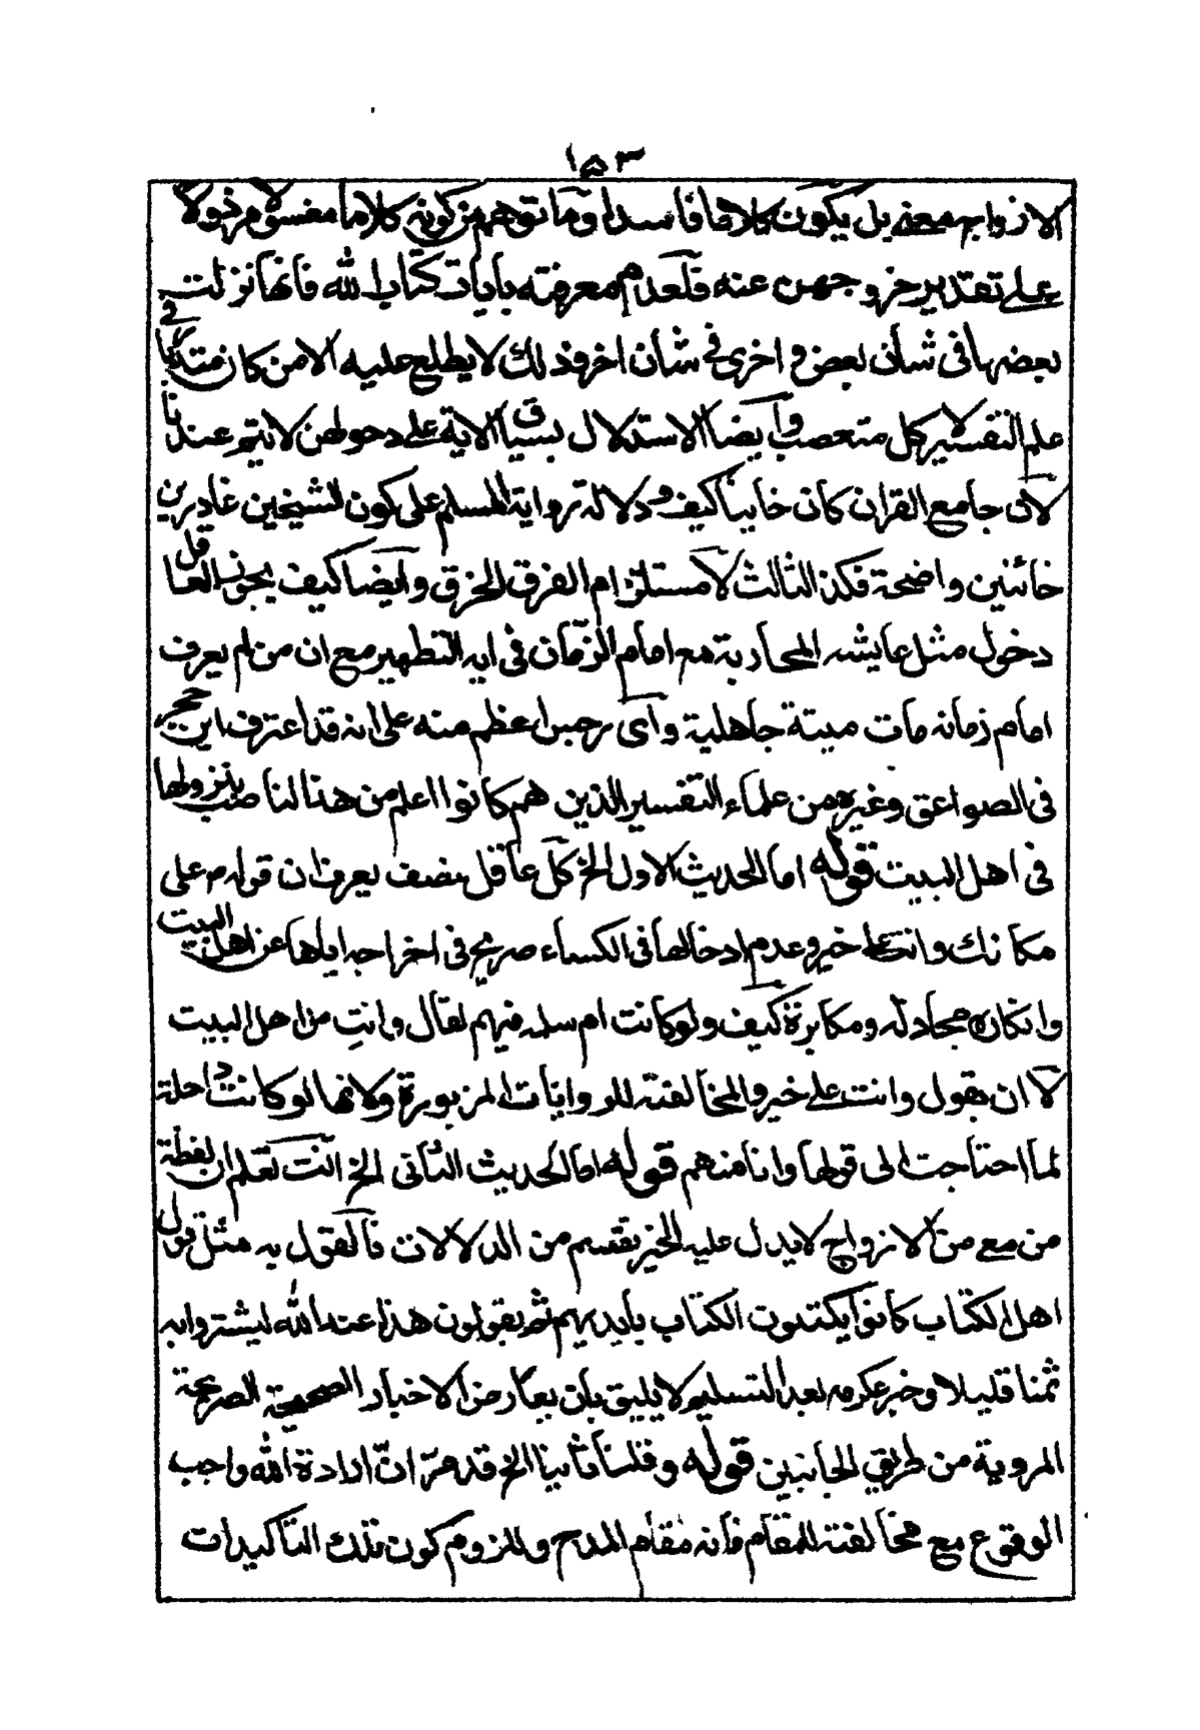 ١٥٣
الازواج معه بل يكون كلاما فاسدا وما توهم من كونه كلاما مغسولا مرذولا
على تقدير خروجهن عنه فلعدم معرفته بايات كتاب الله فانها نزلت
بعضها فى شأن بعض واخرى فى شأن اخر وذلك لا يطلع عليه الا من كان متدربا فى
علم التفسير لا كل متعصب وايضا الاستدلال بسياق الاية على دخولهن لا يتم عندنا
لان جامع القران كان خاينا كيف ودلالة رواية المسلم على كون الشيخين غادرين
خائنين واضحة فكذا الثالث لاستلزام الفرق الخرق وايضا كيف يجوز العاقل
دخول مثل عايشه المحاربة مع امام الزمان فى ايه التطهير مع ان من لم يعرف
امام زمانه مات ميتة جاهلية واى رجس اعظم منه على انه قد اعترف ابن حجر
فى الصواعق وغيره من علماء التفسير الذين هم كانوا اعلم من هذا الناصب بنزولها
فى اهل البيت قوله اما الحديث الاول الخ كل عاقل منصف يعرف ان قوله م على
مكانك وانت على خير وعدم ادخالها فى الكساء صريح فى اخراجه اياها عن اهل البيت
وانكاره مجادله ومكابرة كيف ولو كانت ام سلمه فيهم لقال وانتِ من اهل البيت
لا ان يقول وانت على خير والمخالفته للروايات المزبورة ولانها لو كانت داخلة
لما احتاجت الى قولها وانا منهم قوله اما الحديث الثانى الخ انت تعلم ان لفظة
من مع من الازواج لا يدل عليه الخبر بقسم من الدلالات فالقول به مثل قول
اهل الكتاب كانوا يكتبون الكتاب بايديهم ثم يقولون هذا عند الله ليشتروا به
ثمنا قليلا وخبر عكرمه بعد التسليم لا يليق بان يعارض الاخبار الصحيحة الصريحة
المروية من طريقي الجانبين قوله وقلنا ثانيا الخ قد مرّ انّ ارادة الله واجب
الوقوع مع مخالفته للمقام فانه مقام المدح وللزوم كون تلك التاكيدات